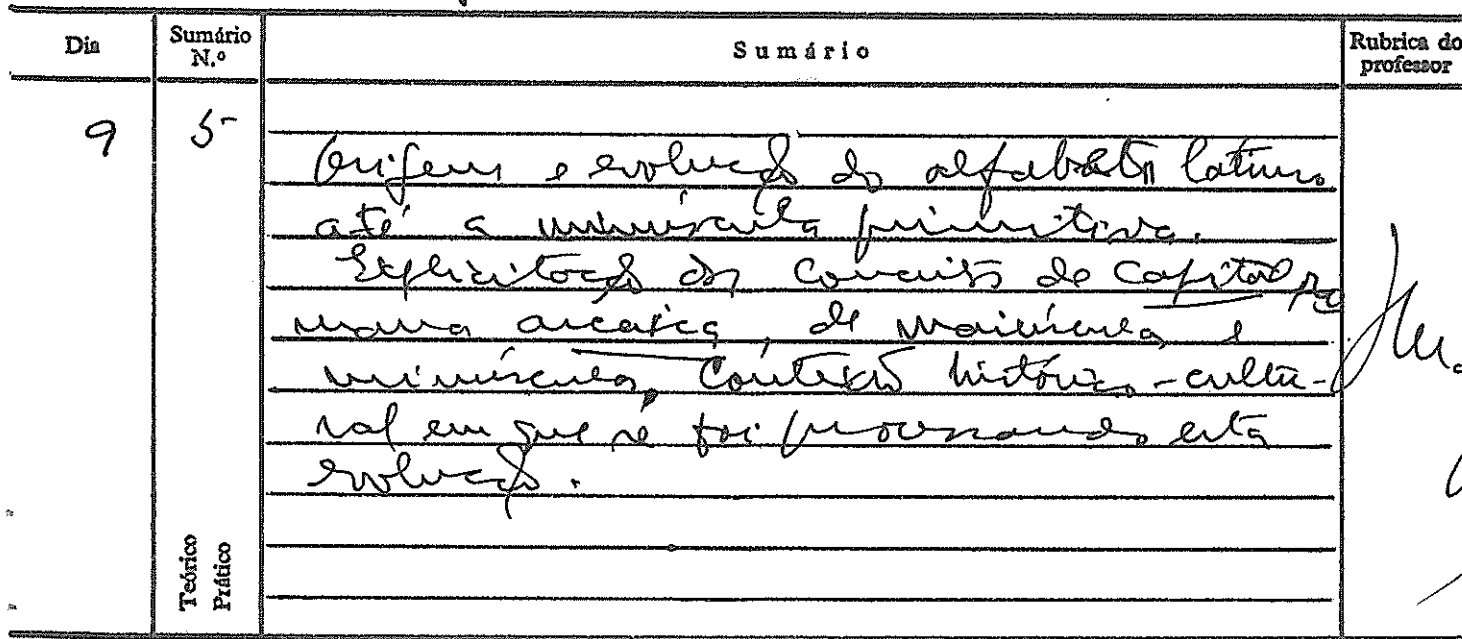 Dia
Sumário N.º
Sumário
Rubrica do professor
9
5
Origem e evolução do alfabeto latino
até a minúscula primitiva.
Explicitação dos conceitos de Capital ro
mana arcaica, de maiúscula e
minúscula. Contexto histórico-cultu-
ral em que se foi processando esta
evolução.
Teórico
Prático